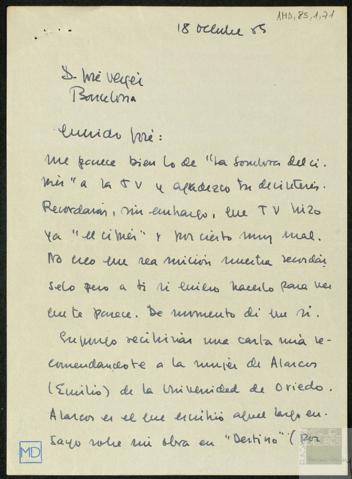 18 octubre 85
AMD,85,1,71
D. José Vergés
Barcelona
Querido José:
me parece bien lo de "La sombra del ci-
prés" a la TV y agradezco tu desinterés.
Recordarás, sin embargo, que TV hizo
ya "el ciprés" y por cierto muy mal.
No creo que sea misión nuestra recordár-
selo pero a ti si quiero hacerlo para ver
que te parece. De momento di que sí.
Supongo recibirías una carta mía re-
comendandote a la mujer de Alarcos
(Emilio) de la Universidad de Oviedo.
Alarcos es el que escribió aquel largo en-
sayo sobre mi obra en "Destino" (por
MD